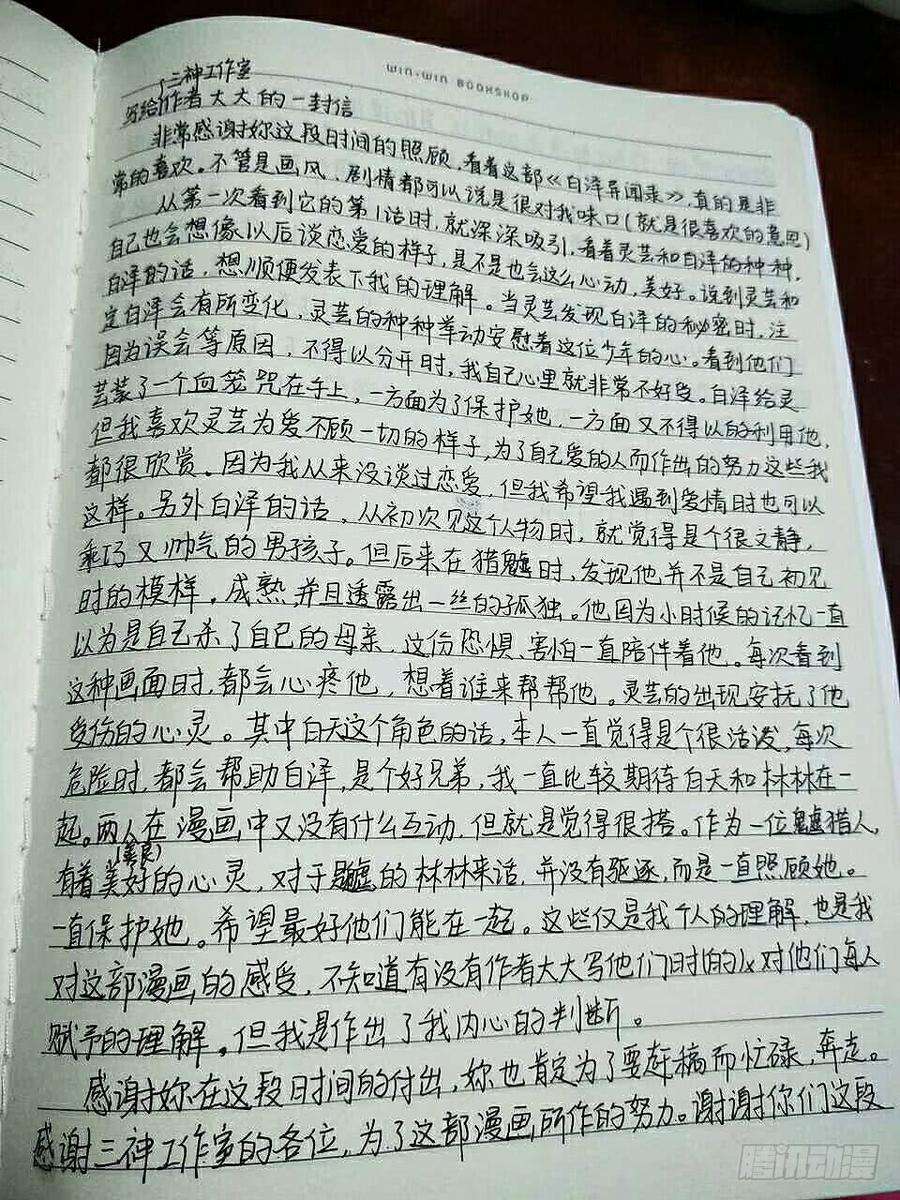 WIN-WIN BOOKSHOP
三神工作室
写给作者大大的一封信
非常感谢妳这段时间的照顾，看着这部《白泽异闻录》，真的是非
常的喜欢。不管是画风、剧情都可以说是很对我味口（就是很喜欢的意思）
从第一次看到它的第1话时，就深深吸引，看着灵芸和白泽的种种，
自己也会想像以后谈恋爱的样子，是不是也会这么心动，美好。说到灵芸和
白泽的话，想顺便发表下我的理解。当灵芸发现白泽的秘密时，注
定白泽会有所变化，灵芸的种种举动安慰着这位少年的心。看到他们
因为误会等原因，不得以分开时，我自己心里就非常不好受。白泽给灵
芸装了一个血笼咒在手上，一方面为了保护她，一方面又不得以的利用他，
但我喜欢灵芸为爱不顾一切的样子，为了自己爱的人而作出的努力这些我
都很欣赏。因为我从来没谈过恋爱，但我希望我遇到爱情时也可以
这样。另外白泽的话，从初次见这个人物时，就觉得是个很文静，
乖巧又帅气的男孩子。但后来在猎魖时，发现他并不是自己初见
时的模样。成熟，并且透露出一丝的孤独。他因为小时候的记忆一直
以为是自己杀了自己的母亲，这伤恐惧、害怕一直陪伴着他。每次看到
这种画面时，都会心疼他，想着谁来帮帮他。灵芸的出现安抚了他
受伤的心灵。其中白天这个角色的话，本人一直觉得是个很活泼，每次
危险时，都会帮助白泽，是个好兄弟，我一直比较期待白天和林林在一
起。两人在漫画中又没有什么互动，但就是觉得很搭。作为一位魖猎人，
(善良)
有着美好的心灵，对于是魖的林林来话，并没有驱逐，而是一直照顾她。
一直保护她。希望最好他们能在一起。这些仅是我个人的理解，也是我
对这部漫画的感受，不知道有没有作者大大写他们时的对他们每人
赋予的理解。但我是作出了我内心的判断。
感谢妳在这段时间的付出，妳也肯定为了要赶稿而忙碌，奔走。
感谢三神工作室的各位，为了这部漫画所作的努力。谢谢你们这段
腾讯动漫